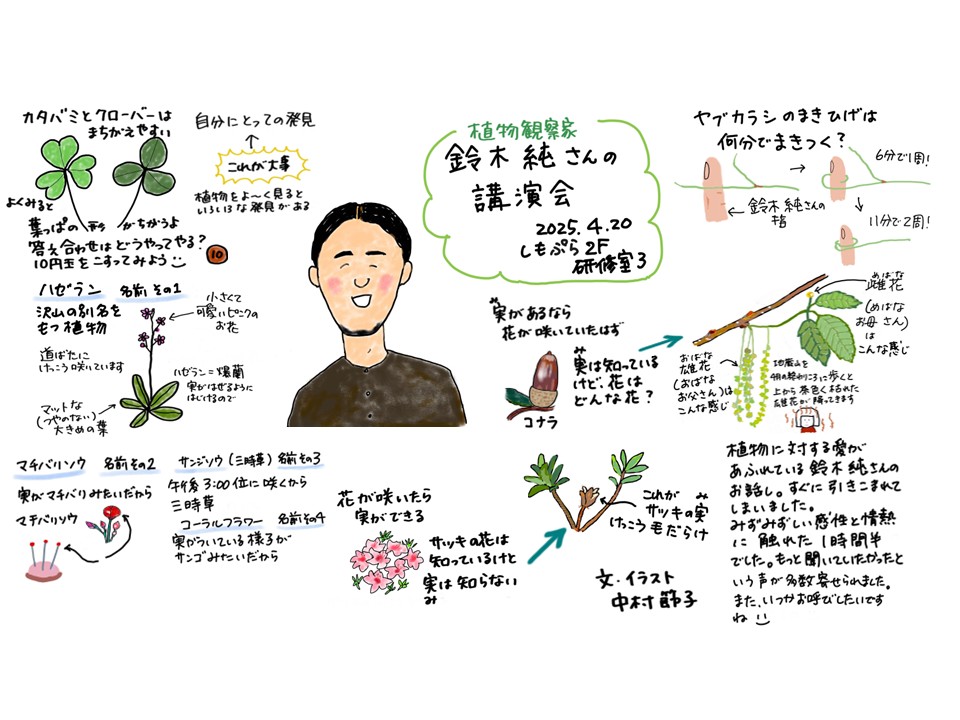 カタバミとクローバーは
まちがえやすい
よくみると
葉っぱの形がちがうよ
答え合わせはどうやってやる?
10円玉をこすってみよう
10
自分にとっての発見
これが大事
植物をよ〜く見ると
いろいろな発見がある
植物観察家
鈴木純さんの
講演会
2025.4.20
しもぷら2F
研修室3
ヤブカラシのまきひげは
何分でまきつく?
6分で1周!
11分で2周!
鈴木純さんの
指
ハゼラン 名前その1
沢山の別名を
もつ植物
小さくて
可愛いピンクの
お花
道ばたに
けっこう咲いています
ハゼラン=爆蘭
実がはぜるように
はじけるので
マットな
(つやのない)
大きめの葉
実があるなら
み
花が咲いていたはず
み
実は知っている
けど、花は
どんな花?
コナラ
めばな
雌花
(めばな
お母さん)
は
こんな感じ
おばな
雄花
(おばな
お父さん)は
こんな感じ
4月の終わりころに歩くと
上から茶色くよごれた
雄花が降ってきます
マチバリソウ 名前その2
実がマチバリみたいだから
マチバリソウ
サンジソウ(三時草)名前その3
午後3:00位に咲くから
三時草
コーラルフラワー 名前その4
実がついている様子が
サンゴみたいだから
花が咲いたら
実ができる
サツキの花は
知っているけど
実は知らない
み
これが
み
サツキの実
けっこう毛だらけ
文・イラスト
中村節子
植物に対する愛が
あふれている鈴木純さんの
お話し。すぐに引きこまれて
しまいました。
みずみずしい感性と情熱
に触れた1時間半
でした。もっと聞いていたかったと
いう声が多数寄せられました。
また、いつかお呼びしたいです
ね